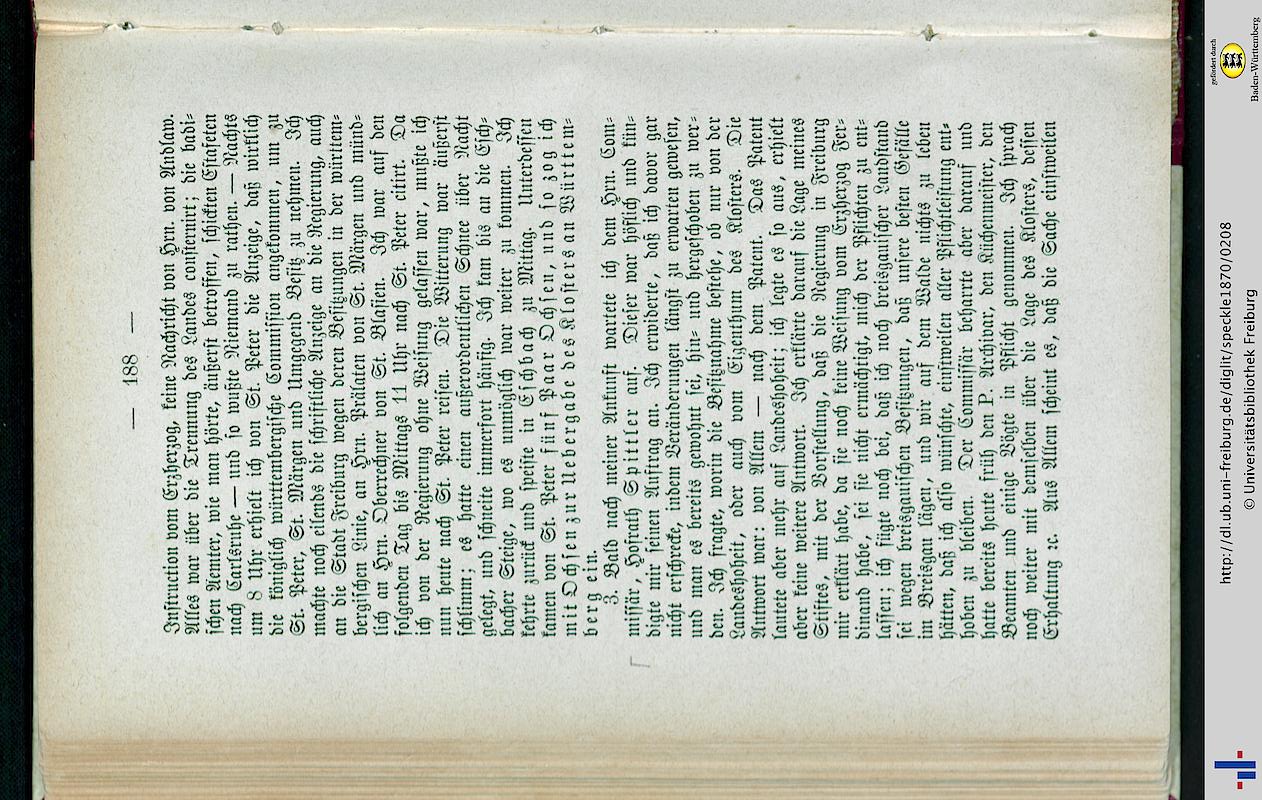 — 188 —
Instruction vom Erzherzog, keine Nachricht von Hrn. von Andlaw.
Alles war über die Trennung des Landes consternirt; die badi-
schen Aemter, wie man hörte, äußerst betroffen, schickten Estafeten
nach Carlsruhe — und so wußte Niemand zu rathen. — Nachts
um 8 Uhr erhielt ich von St. Peter die Anzeige, daß wirklich
die königlich württembergische Commission angekommen, um zu
St. Peter, St. Märgen und Umgegend Besitz zu nehmen. Ich
machte noch eilends die schriftliche Anzeige an die Regierung, auch
an die Stadt Freiburg wegen deren Besitzungen in der württem-
bergischen Linie, an Hrn. Prälaten von St. Märgen und münd-
lich an Hrn. Oberrechner von St. Blasien. Ich war auf den
folgenden Tag bis Mittags 11 Uhr nach St. Peter citirt. Da
ich von der Regierung ohne Weisung gelassen war, mußte ich
nun heute nach St. Peter reisen. Die Witterung war äußerst
schlimm; es hatte einen außerordentlichen Schnee über Nacht
gelegt, und schneite immerfort häufig. Ich kam bis an die Esch-
bacher Steige, wo es unmöglich war weiter zu kommen. Ich
kehrte zurück und speiste in Eschbach zu Mittag. Unterdessen
kamen von St. Peter fünf Paar Ochsen, und so zog ich
mit Ochsen zur Uebergabe des Klosters an Württem-
berg ein.
3. Bald nach meiner Ankunft wartete ich dem Hrn. Com-
missär, Hofrath Spittler auf. Dieser war höflich und kün-
digte mir seinen Auftrag an. Ich erwiderte, daß ich davor gar
nicht erschrecke, indem Veränderungen längst zu erwarten gewesen,
und man es bereits gewohnt sei, hin- und hergeschoben zu wer-
den. Ich fragte, worin die Besitznahme bestehe, ob nur von der
Landeshoheit, oder auch vom Eigenthum des Klosters. Die
Antwort war: von Allem — nach dem Patent. Das Patent
lautete aber mehr auf Landeshoheit; ich legte es so aus, erhielt
aber keine weitere Antwort. Ich erklärte darauf die Lage meines
Stiftes, mit der Vorstellung, daß die Regierung in Freiburg
mir erklärt habe, da sie noch keine Weisung vom Erzherzog Fer-
dinand habe, sei sie nicht ermächtigt, mich der Pflichten zu ent-
lassen; ich fügte noch bei, daß ich noch breisgauischer Landstand
sei wegen breisgauischen Besitzungen, daß unsere besten Gefälle
im Breisgau lägen, und wir auf dem Walde nichts zu leben
hätten, daß ich also wünschte, einstweilen aller Pflichtleistung ent-
hoben zu bleiben. Der Commissär beharrte aber darauf und
hatte bereits heute früh den P. Archivar, den Küchenmeister, den
Beamten und einige Vögte in Pflicht genommen. Ich sprach
noch weiter mit demselben über die Lage des Klosters, dessen
Erhaltung ꝛc. Aus Allem scheint es, daß die Sache einstweilen
http://dl.ub.uni-freiburg.de/diglit/speckle1870/0208
© Universitätsbibliothek Freiburg
gefördert durch
Baden-Württemberg